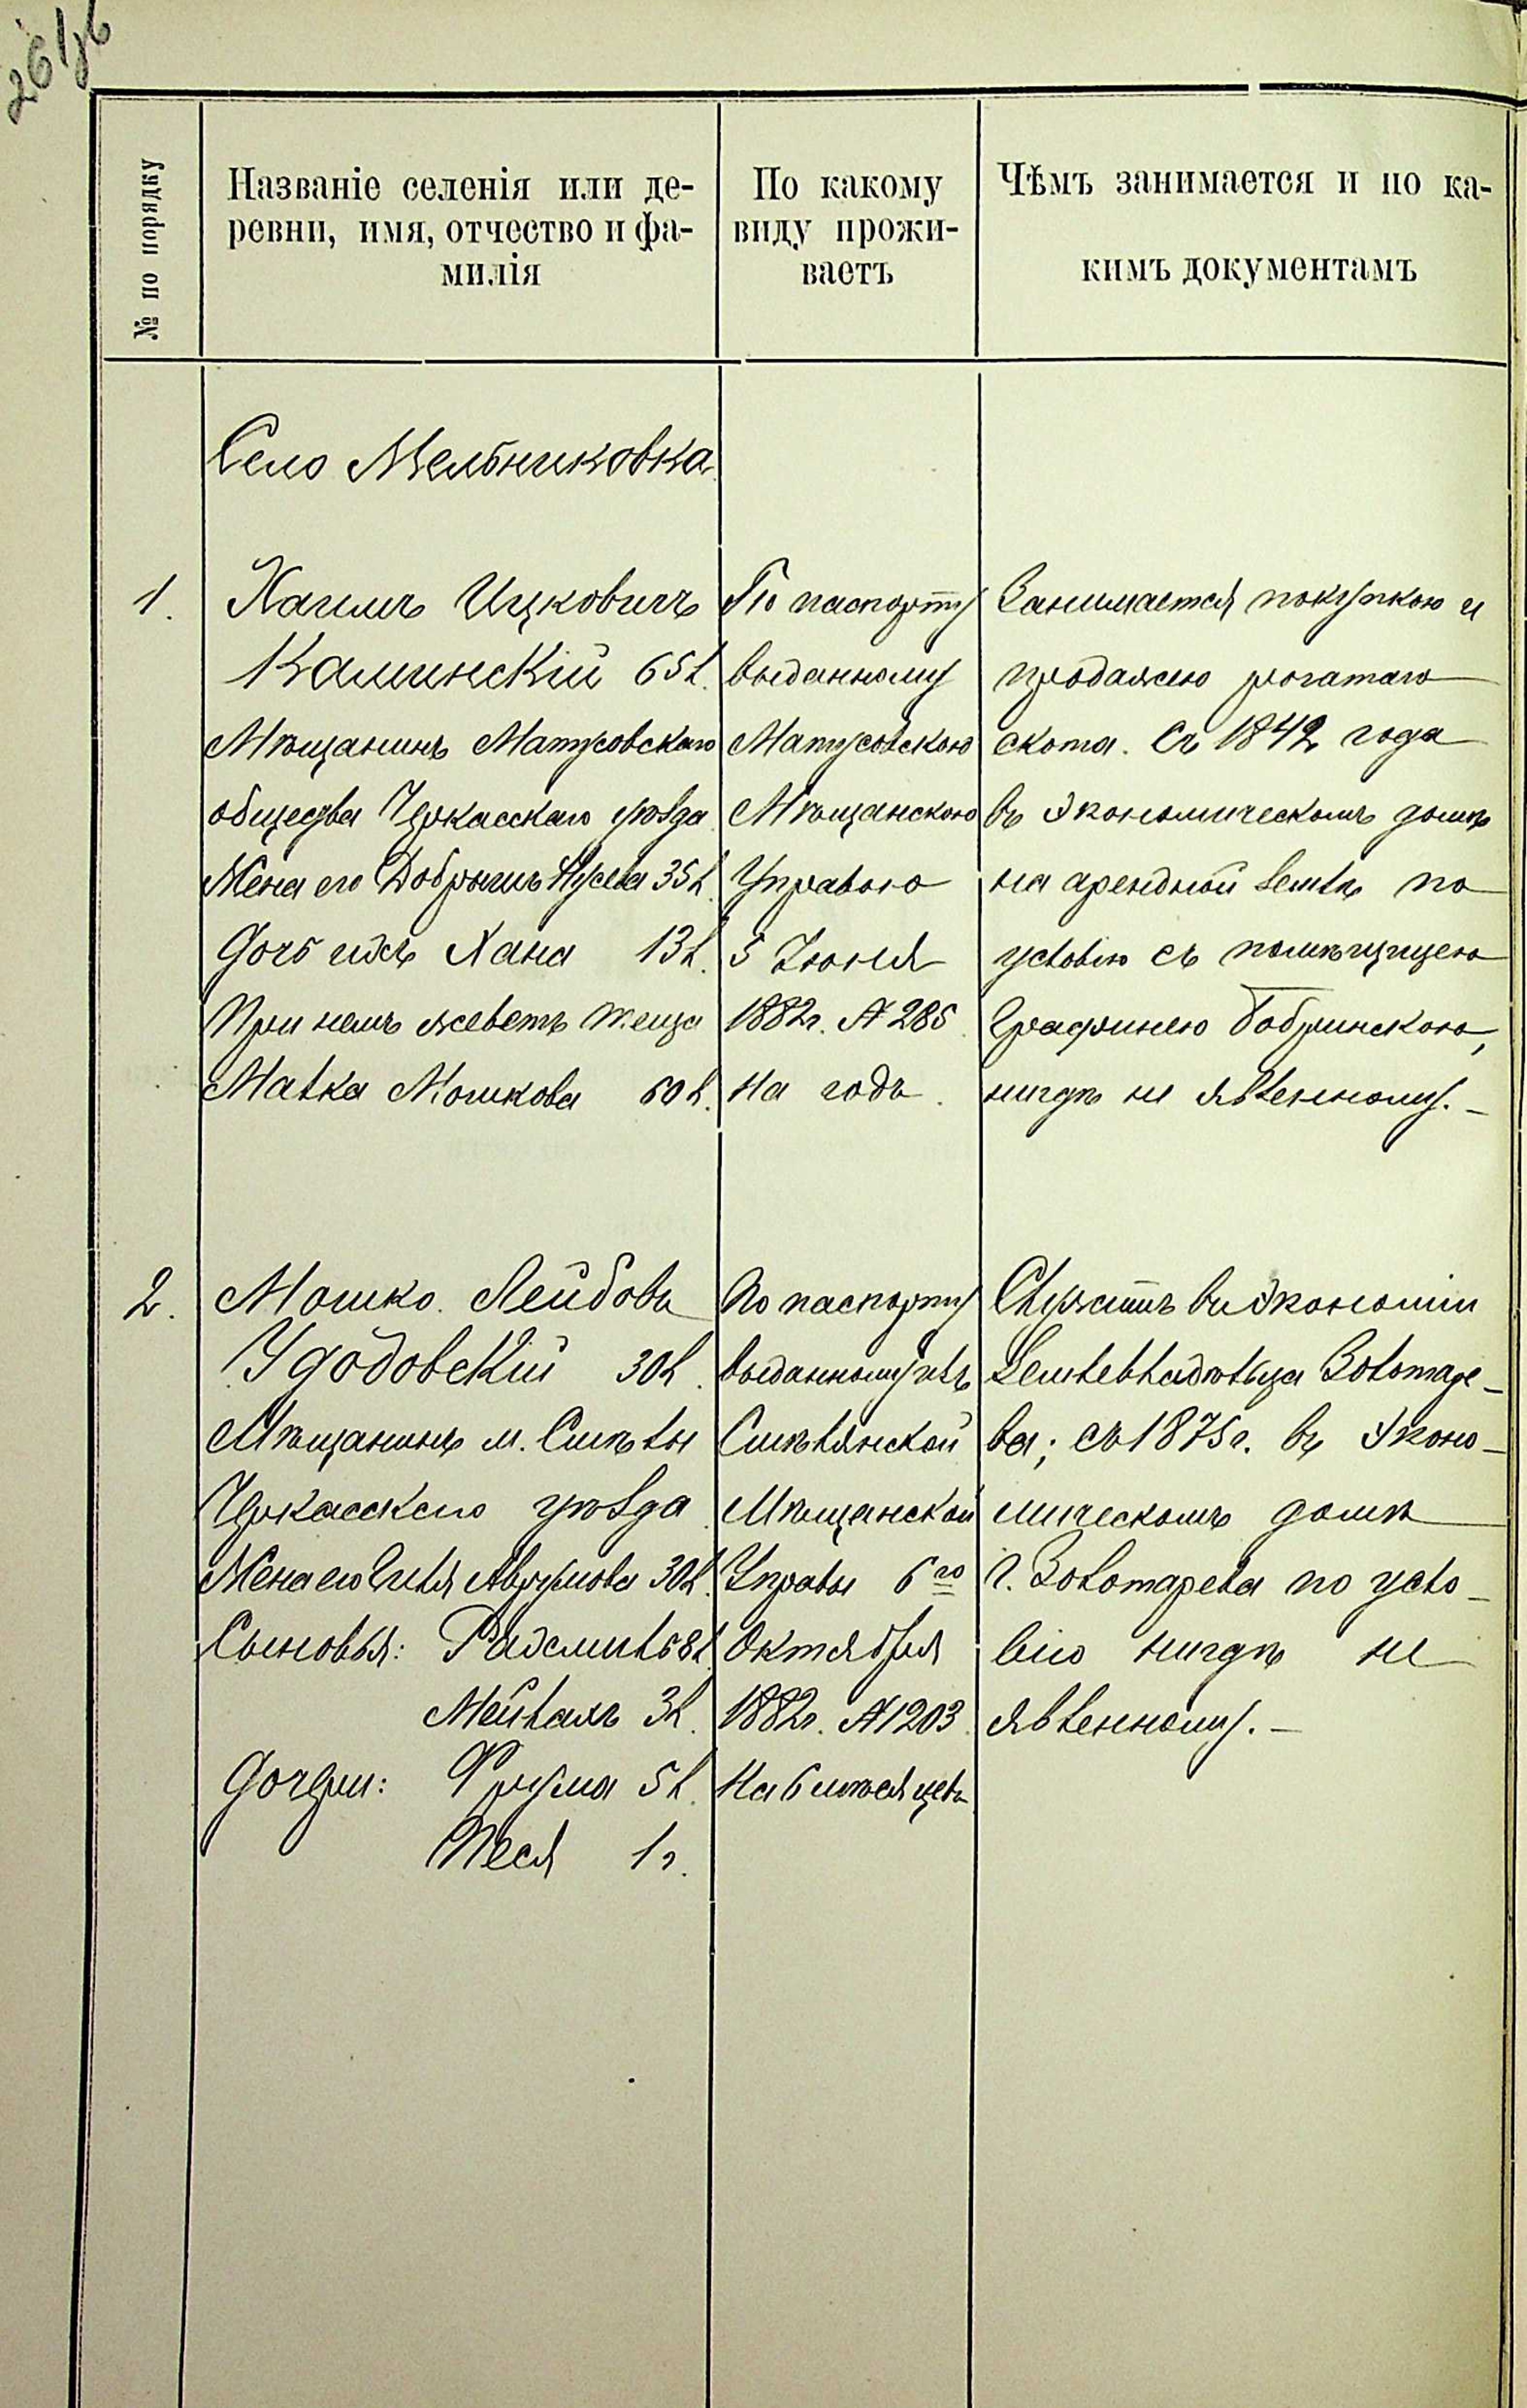 № по порядку
Названіе селенія или де-
ревни, имя, отчество и фа-
милія
По какому
виду прожи-
ваетъ
Чѣмъ занимается и по ка-
кимъ документамъ
Село Мельниковка
1.
Хаимъ Ицковичъ
Калинскій 65 л.
Мѣщанинъ Матусовскаго
общества Черкасскаго уѣзда
Жена его Добрышъ 35 л.
Дочь ихъ Хана 13 л.
При немъ живетъ теща
Малка Мошкова 60 л.
По паспорту
выданному
Матусовскою
Мѣщанскою
Управою
5 Іюня
1882 г. № 285
на годъ.
Занимается покупкою и
продажею рогатаго
скота. Съ 1842 года
въ экономическомъ домѣ
на арендной землѣ по
условію съ помѣщицею
Графинею Бобринскою,
нигдѣ не явленному. –
2.
Мошко Лейбовъ
Удодовскій 30 л.
Мѣщанинъ м. Смѣлы
Черкасскаго уѣзда
Жена его Аврумова 30 л.
Сыновья: 8 л.
3 л.
Дочери: Фрума 5 л.
Песя 1 г.
По паспорту
выданному изъ
Смѣлянской
Мѣщанской
Управы 6го
Октября
1882 г. № 1203
на 6 мѣсяцевъ
Служитъ въ Экономіи
Землевладѣльца Золотаре-
ва; съ 1875 г. въ Эконо-
мическомъ домѣ
г. Золотарева по усло-
вію нигдѣ не
явленному. –